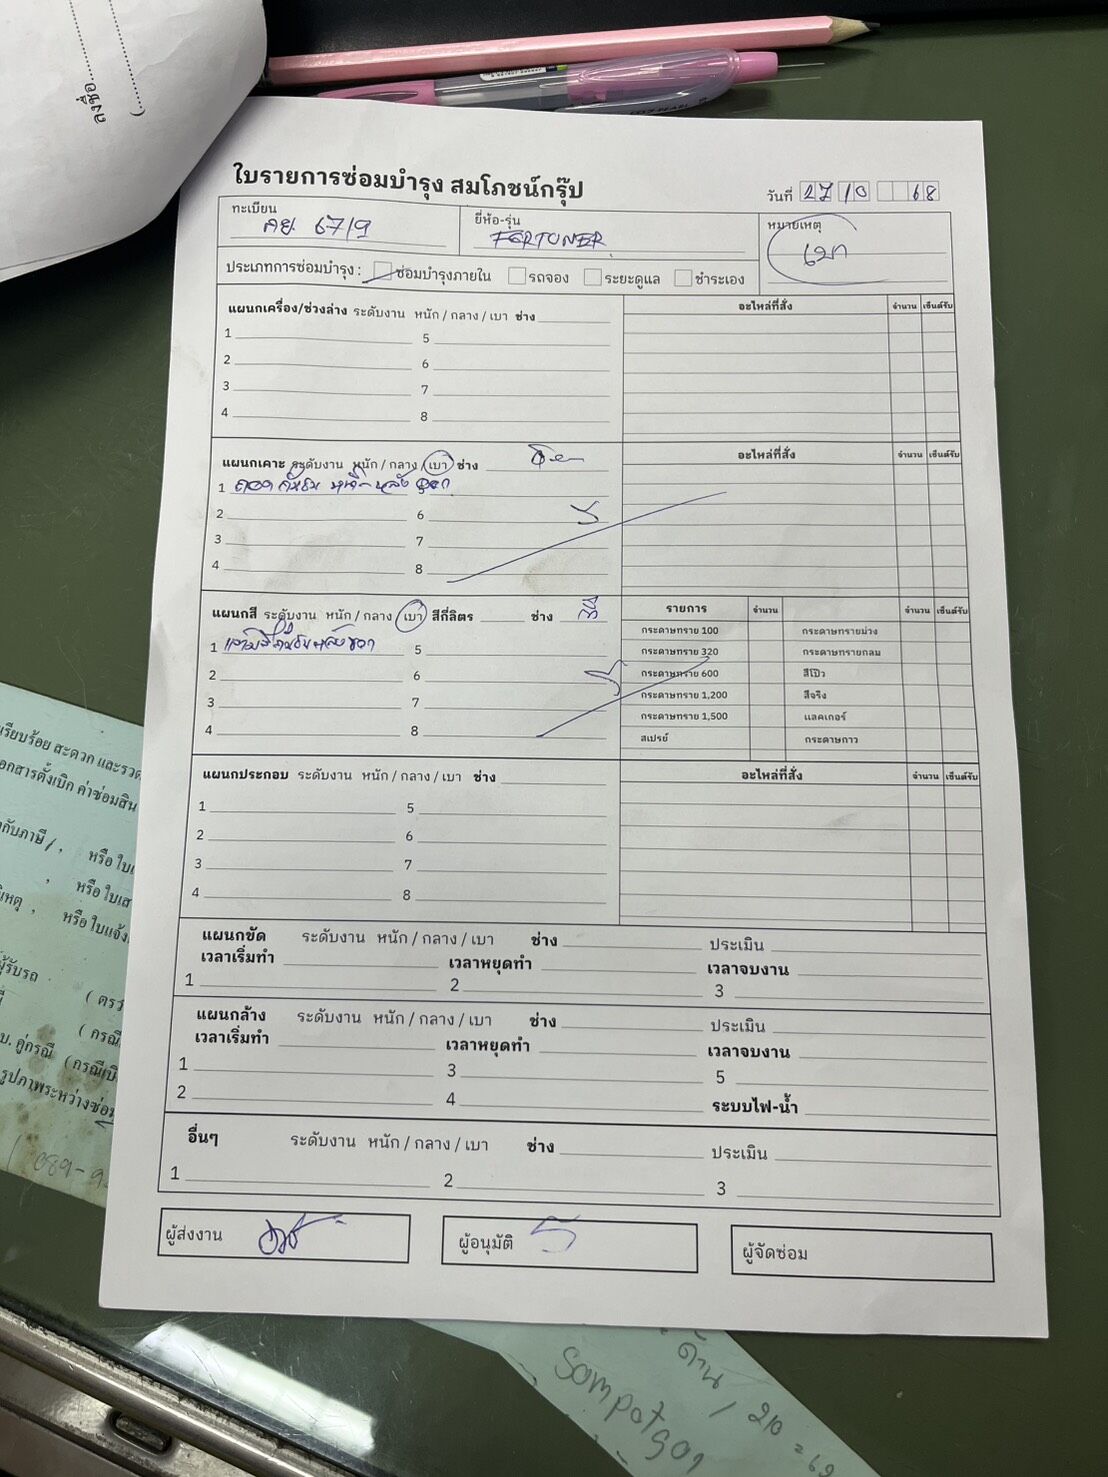 ลงชื่อ
ใบรายการซ่อมบำรุง สมโภชน์กรุ๊ป
วันที่ 27 10 68
ทะเบียน
6719
ยี่ห้อ-รุ่น
FORTUNER
หมายเหตุ
เบา
ประเภทการซ่อมบำรุง : ซ่อมบำรุงภายใน รถจอง ระยะดูแล ชำระเอง
แผนกเครื่อง/ช่วงล่าง ระดับงาน หนัก / กลาง / เบา ช่าง
อะไหล่ที่สั่ง จำนวน เซ็นต์รับ
1 5
2 6
3 7
4 8
แผนกเคาะ ระดับงาน หนัก / กลาง / เบา ช่าง
อะไหล่ที่สั่ง จำนวน เซ็นต์รับ
1 ถอด กันชน หลัง
2 6
3 7
4 8
แผนกสี ระดับงาน หนัก / กลาง / เบา สีกี่ลิตร ช่าง
รายการ จำนวน จำนวน เซ็นต์รับ
1 กันชนหลัง 5
2 6
3 7
4 8
กระดาษทราย 100 กระดาษทรายม่วง
กระดาษทราย 320 กระดาษทรายกลม
กระดาษทราย 600 สีโป๊ว
กระดาษทราย 1,200 สีจริง
กระดาษทราย 1,500 แลคเกอร์
สเปรย์ กระดาษกาว
แผนกประกอบ ระดับงาน หนัก / กลาง / เบา ช่าง
อะไหล่ที่สั่ง จำนวน เซ็นต์รับ
1 5
2 6
3 7
4 8
แผนกขัด ระดับงาน หนัก / กลาง / เบา ช่าง ประเมิน
เวลาเริ่มทำ เวลาหยุดทำ เวลาจบงาน
1 2 3
แผนกล้าง ระดับงาน หนัก / กลาง / เบา ช่าง ประเมิน
เวลาเริ่มทำ เวลาหยุดทำ เวลาจบงาน
1 3 5
2 4 ระบบไฟ-น้ำ
อื่นๆ ระดับงาน หนัก / กลาง / เบา ช่าง ประเมิน
1 2 3
ผู้ส่งงาน
ผู้อนุมัติ
ผู้จัดซ่อม
เรียบร้อย สะดวก และรวด
อกสารตั้งเบิก ค่าซ่อมสิน
กับภาษี / , หรือ ใบ
, หรือ ใบเส
หรือ ใบแจ้ง
ผู้รับรถ ( ตรว
( กรณี
บ. คู่กรณี (กรณีเบิ
รูปภาพระหว่างซ่อม
089-9
ด้าน / 210